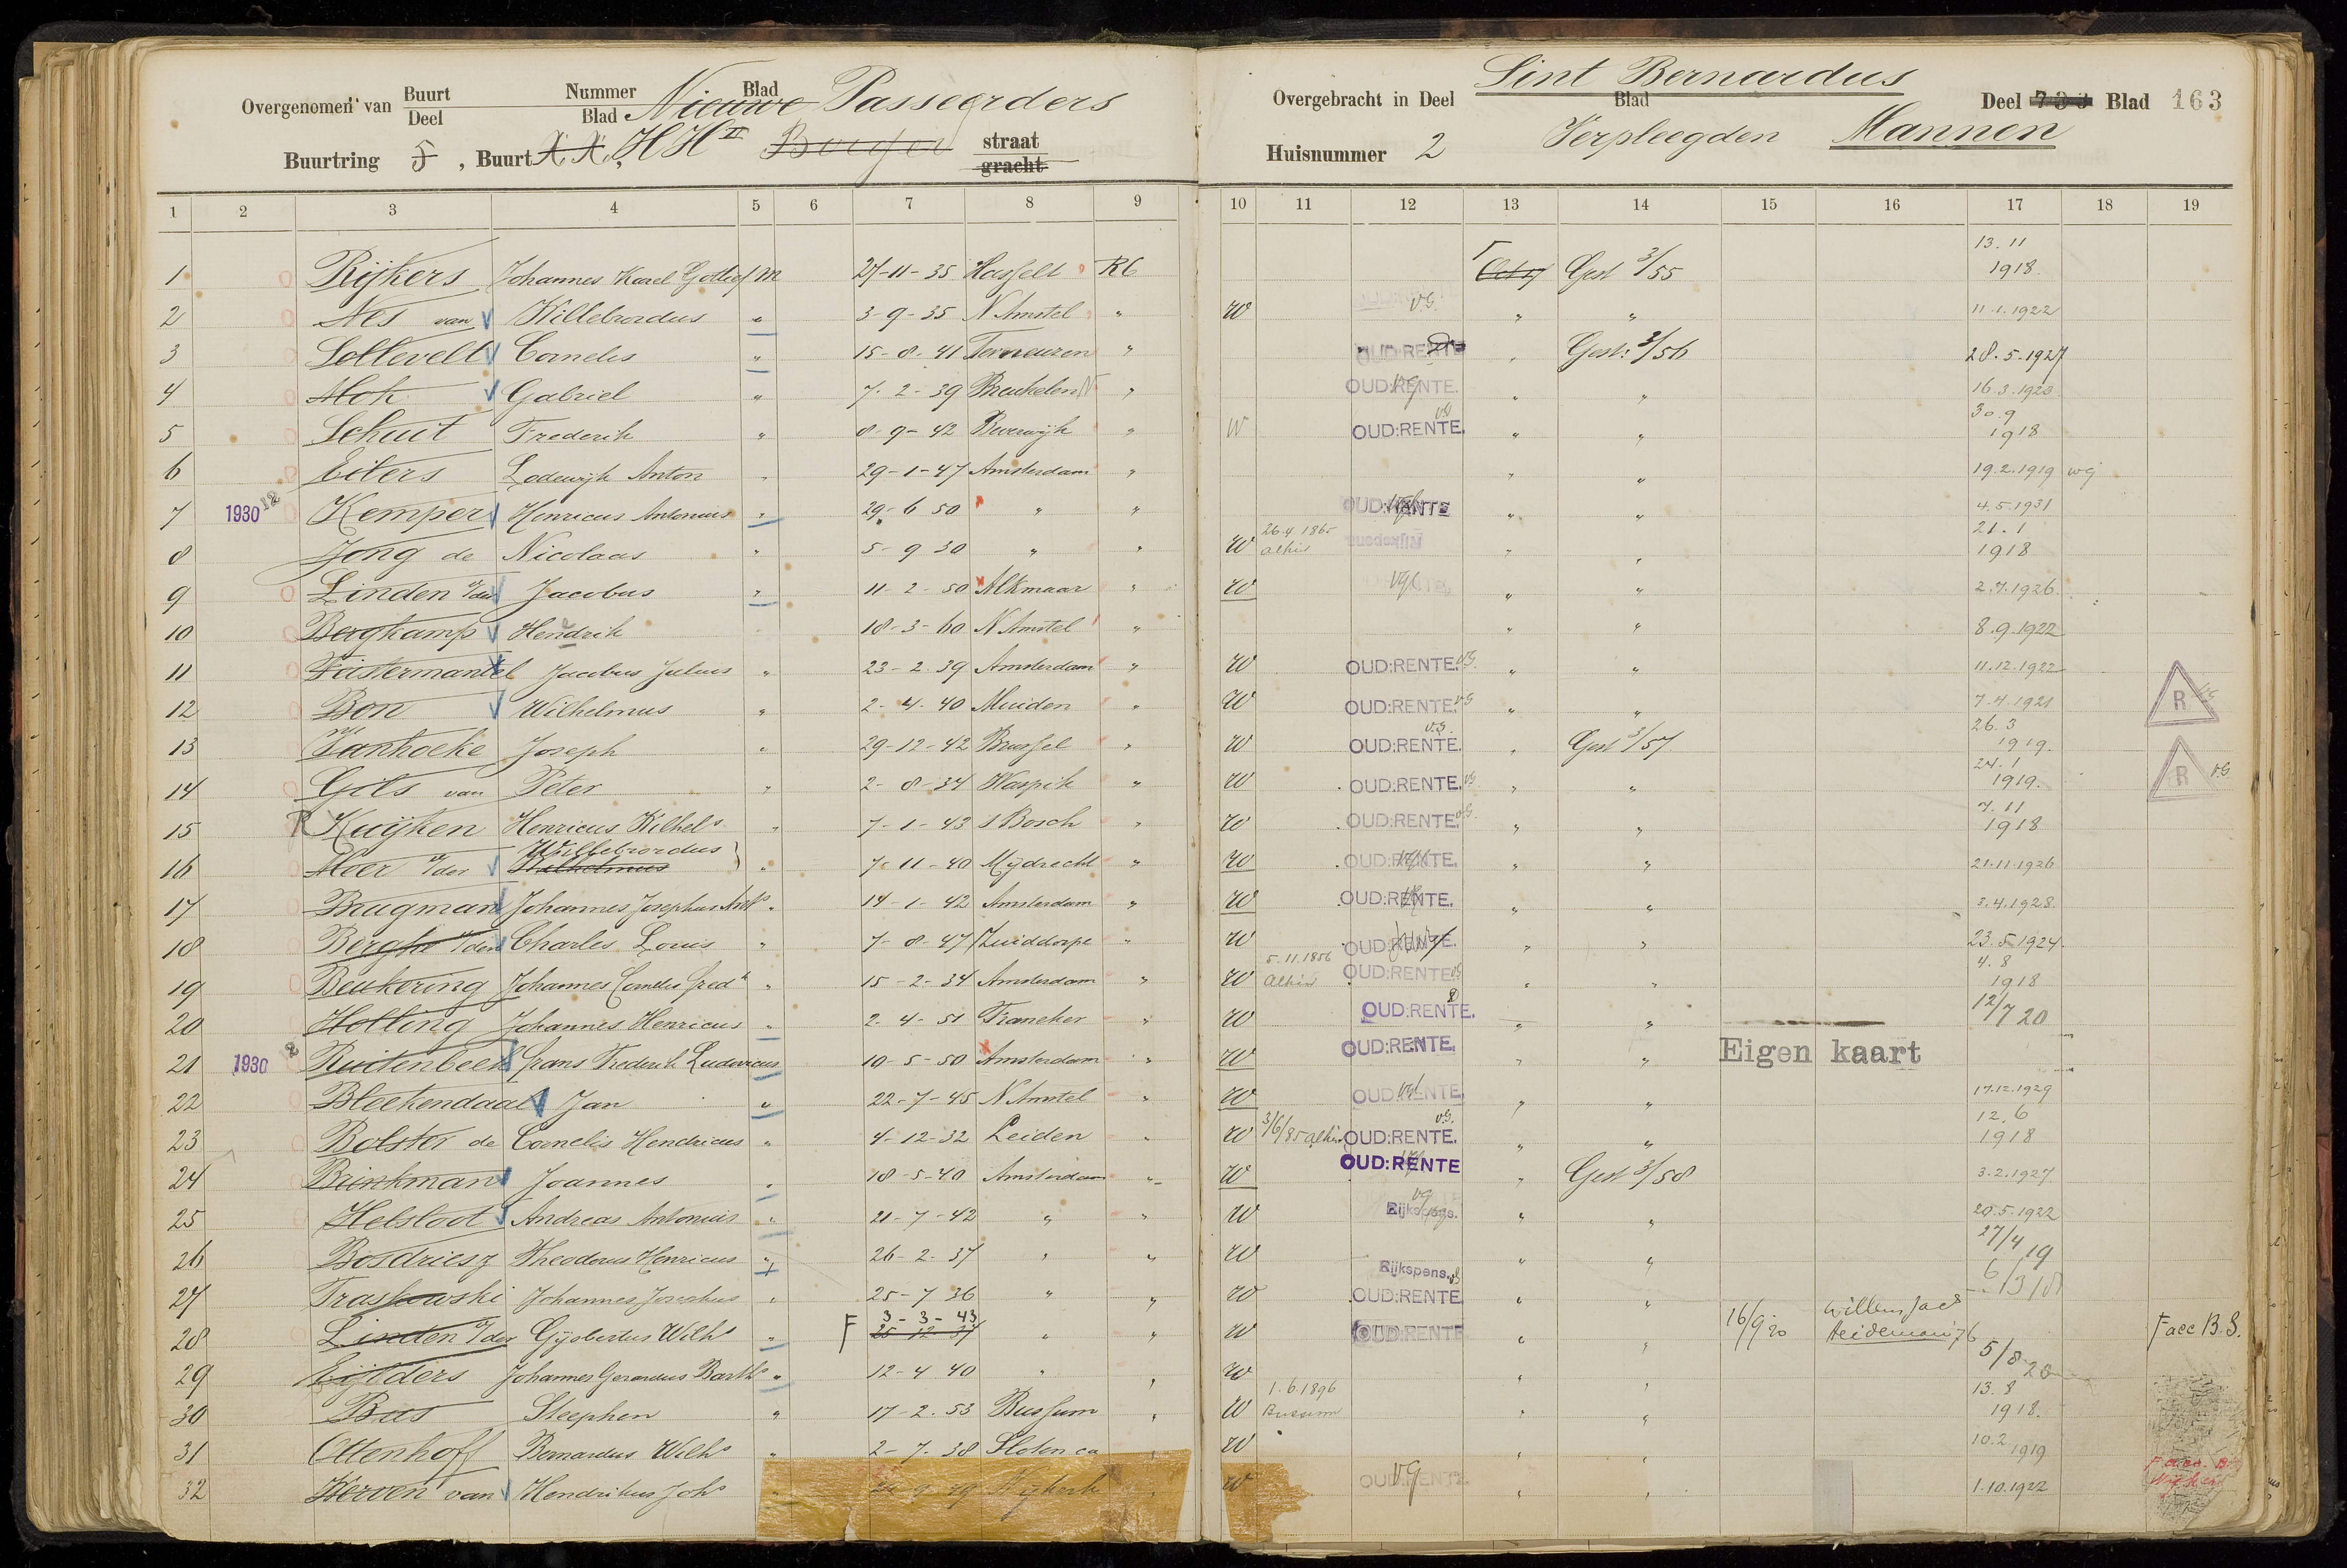 Overgenomen van Buurt Deel Nummer Blad Blad Nieuwe Passeerders
Buurtring 5, Buurt X.X., HH II straat gracht
Sint Bernardus
Overgebracht in Deel Blad Deel Blad 163
Huisnummer 2 Verpleegden Mannen
1 2 3 4 5 6 7 8 9 10 11 12 13 14 15 16 17 18 19
1 Rijkers Johannes Karel m 27-11-35 Hasselt RC Gest 3/55 13.11 1918
2 Nes van Willebrordus " 3-9-35 N Amstel " W v.G. " " 11.1.1922
3 Sollevelt Cornelis " 15-8-41 Terneuzen " OUD:RENTE " Gest: 3/56 28.5.1927
4 Mok Gabriel " 7-2-39 Breukelen N " OUD:RENTE. " " 16.3.1923
5 Schuit Frederik " 8-9-42 Beverwijk " W v.G OUD:RENTE. " " 30.9 1918
6 Eilers Lodewijk Anton " 29-1-47 Amsterdam " " " 19.2.1919 wg
7 1930 12 Kemper Henricus Antonius " 29-6 50 " " OUD:RENTE " " 4.5.1931
8 Jong de Nicolaas " 5-9 30 " " W 26.4.1865 alhier Rijkspens " " 21.1 1918
9 Linden v/der Jacobus " 11-2-50 Alkmaar " W vG " " 2.7.1926
10 Bergkamp Hendrik 18-3-60 N Amstel " " " 8.9.1922
11 Fastermantel Jacobus Julius " 23-2-39 Amsterdam " W OUD:RENTE. v.G. " " 11.12.1922
12 Bon Wilhelmus " 2-4-40 Muiden " W OUD:RENTE. v.G " " 7.4.1921 R v.G
13 Vanhoeke Joseph " 29-12-42 Brussel " W v.G. OUD:RENTE. " Gest 3/57 26.3 1919.
14 Gils van Peter " 2-8-34 Waspik " W OUD:RENTE. v.G " " 24.1 1919. R v.G.
15 Kuijken Henricus Wilhel s " 7-1-43 s Bosch " W OUD:RENTE. v.G. " " 7.11 1918
16 Meer v/der Willebrordus Wilhelmus " 7-11-40 Mijdrecht " W OUD:RENTE. " " 21.11.1926
17 Brugman Johannes Josephus " 14-1-42 Amsterdam " W OUD:RENTE. " " 3.4.1928
18 Berghe v/den Charles Louis " 7-8-47 Zuiddorpe " W OUD:RENTE. " " 23.5.1924
19 Beukering Johannes Cornelis Fred k " 15-2-34 Amsterdam " W 5.11.1856 alhier OUD:RENTE vG " " 4.8 1918
20 Holling Johannes Henricus " 2-4-51 Franeker " W OUD:RENTE. " " 12/7 20
21 1930 12 Ruitenbeek Frans Frederik Ludovicus 10-5-50 Amsterdam " W OUD:RENTE. " " Eigen kaart
22 Bleekendaal Jan " 22-7-45 N Amstel " W OUD:RENTE " " 17.12.1929
23 Bolster de Cornelis Hendricus " 4-12-32 Leiden " W 3/6/85 alhier v.G. OUD:RENTE. " " 12.6 1918
24 Brinkman Joannes " 18-5-40 Amsterdam " W OUD:RENTE " Gest 3/58 3.2.1927
25 Helsloot Andreas Antonius " 21-7-42 " " W vG Rijkspens. " " 20.5.1922
26 Bosdriesz Theodorus Henricus " 26-2-37 " " W Rijkspens. vG " " 27/4 19
27 Traskowski Johannes Josephus " 25-7 36 " " W OUD:RENTE. " " 6/3 18
28 Linden v/der Gijsbertus Wilh s " F 3-3-43 25 12 37 " " W OUD:RENTE " " 16/9 20 Willem Jac s F acc B.S.
29 Eijlders Johannes Gerardus Barth s " 12-4 40 " " W " " 5/8 20
30 Bus Steephen " 17-2-53 Bussum " W 1.6.1896 Bussum " " 13.8 1918.
31 Ottenhoff Bernardus Wilh s " 2-7-38 Sloten " W " " 10.2 1919
32 Kerven van Hendrikus Joh s Nijkerk " W OUD:RENTE vG " " 1.10.1922